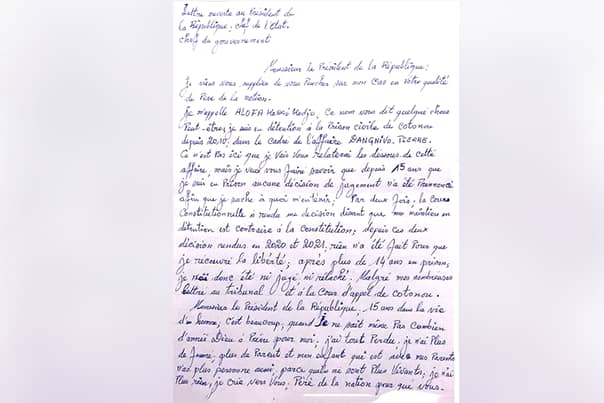 Lettre ouverte au Président de
la République, chef de l'Etat,
chef du gouvernement
Monsieur le Président de la République;
Je viens vous supplier de vous Pencher sur mon cas en votre qualité
de Père de la nation.
Je m'appelle ALOFA Codjo, Ce nom vous dit quelque chose
Peut-être, je suis en détention à la Prison civile de cotonou
depuis 2010, dans le cadre de l'affaire DANGNIVO. PIERRE.
Ce n'est Pas ici que je vais vous relater les dessous de cette
affaire, mais je veux vous faire savoir que depuis 15 ans que
je suis en Prison aucune décision de jugement n'a été Prononcé
afin que je sache à quoi m'entenir; Par deux fois, la Cour
Constitutionnelle à rendu une décision disant que mon maintien en
détention est contraire à la constitution; depuis ces deux
décision rendus en 2020 et 2021, rien n'a été fait Pour que
je recouvre la liberté; après plus de 14 ans en prison,
je n'ai donc été ni jugé ni relâché. Malgré mes nombreuses
lettre au tribunal et à la Cour d'appel de cotonou.
Monsieur le Président de la République, 15 ans dans la vie
d'un homme, c'est beaucoup, quand Je ne sait même Pas Combien
d'année Dieu à Prévu pour moi; j'ai tout Perdu. je n'ai Plus
de femme, plus de Parent et mon enfant qui est mes Parents
n'a plus personne aussi, parce qu'ils ne sont Plus Vivants; je n'ai
Plus rien, je crie vers vous. Père de la nation pour que vous.